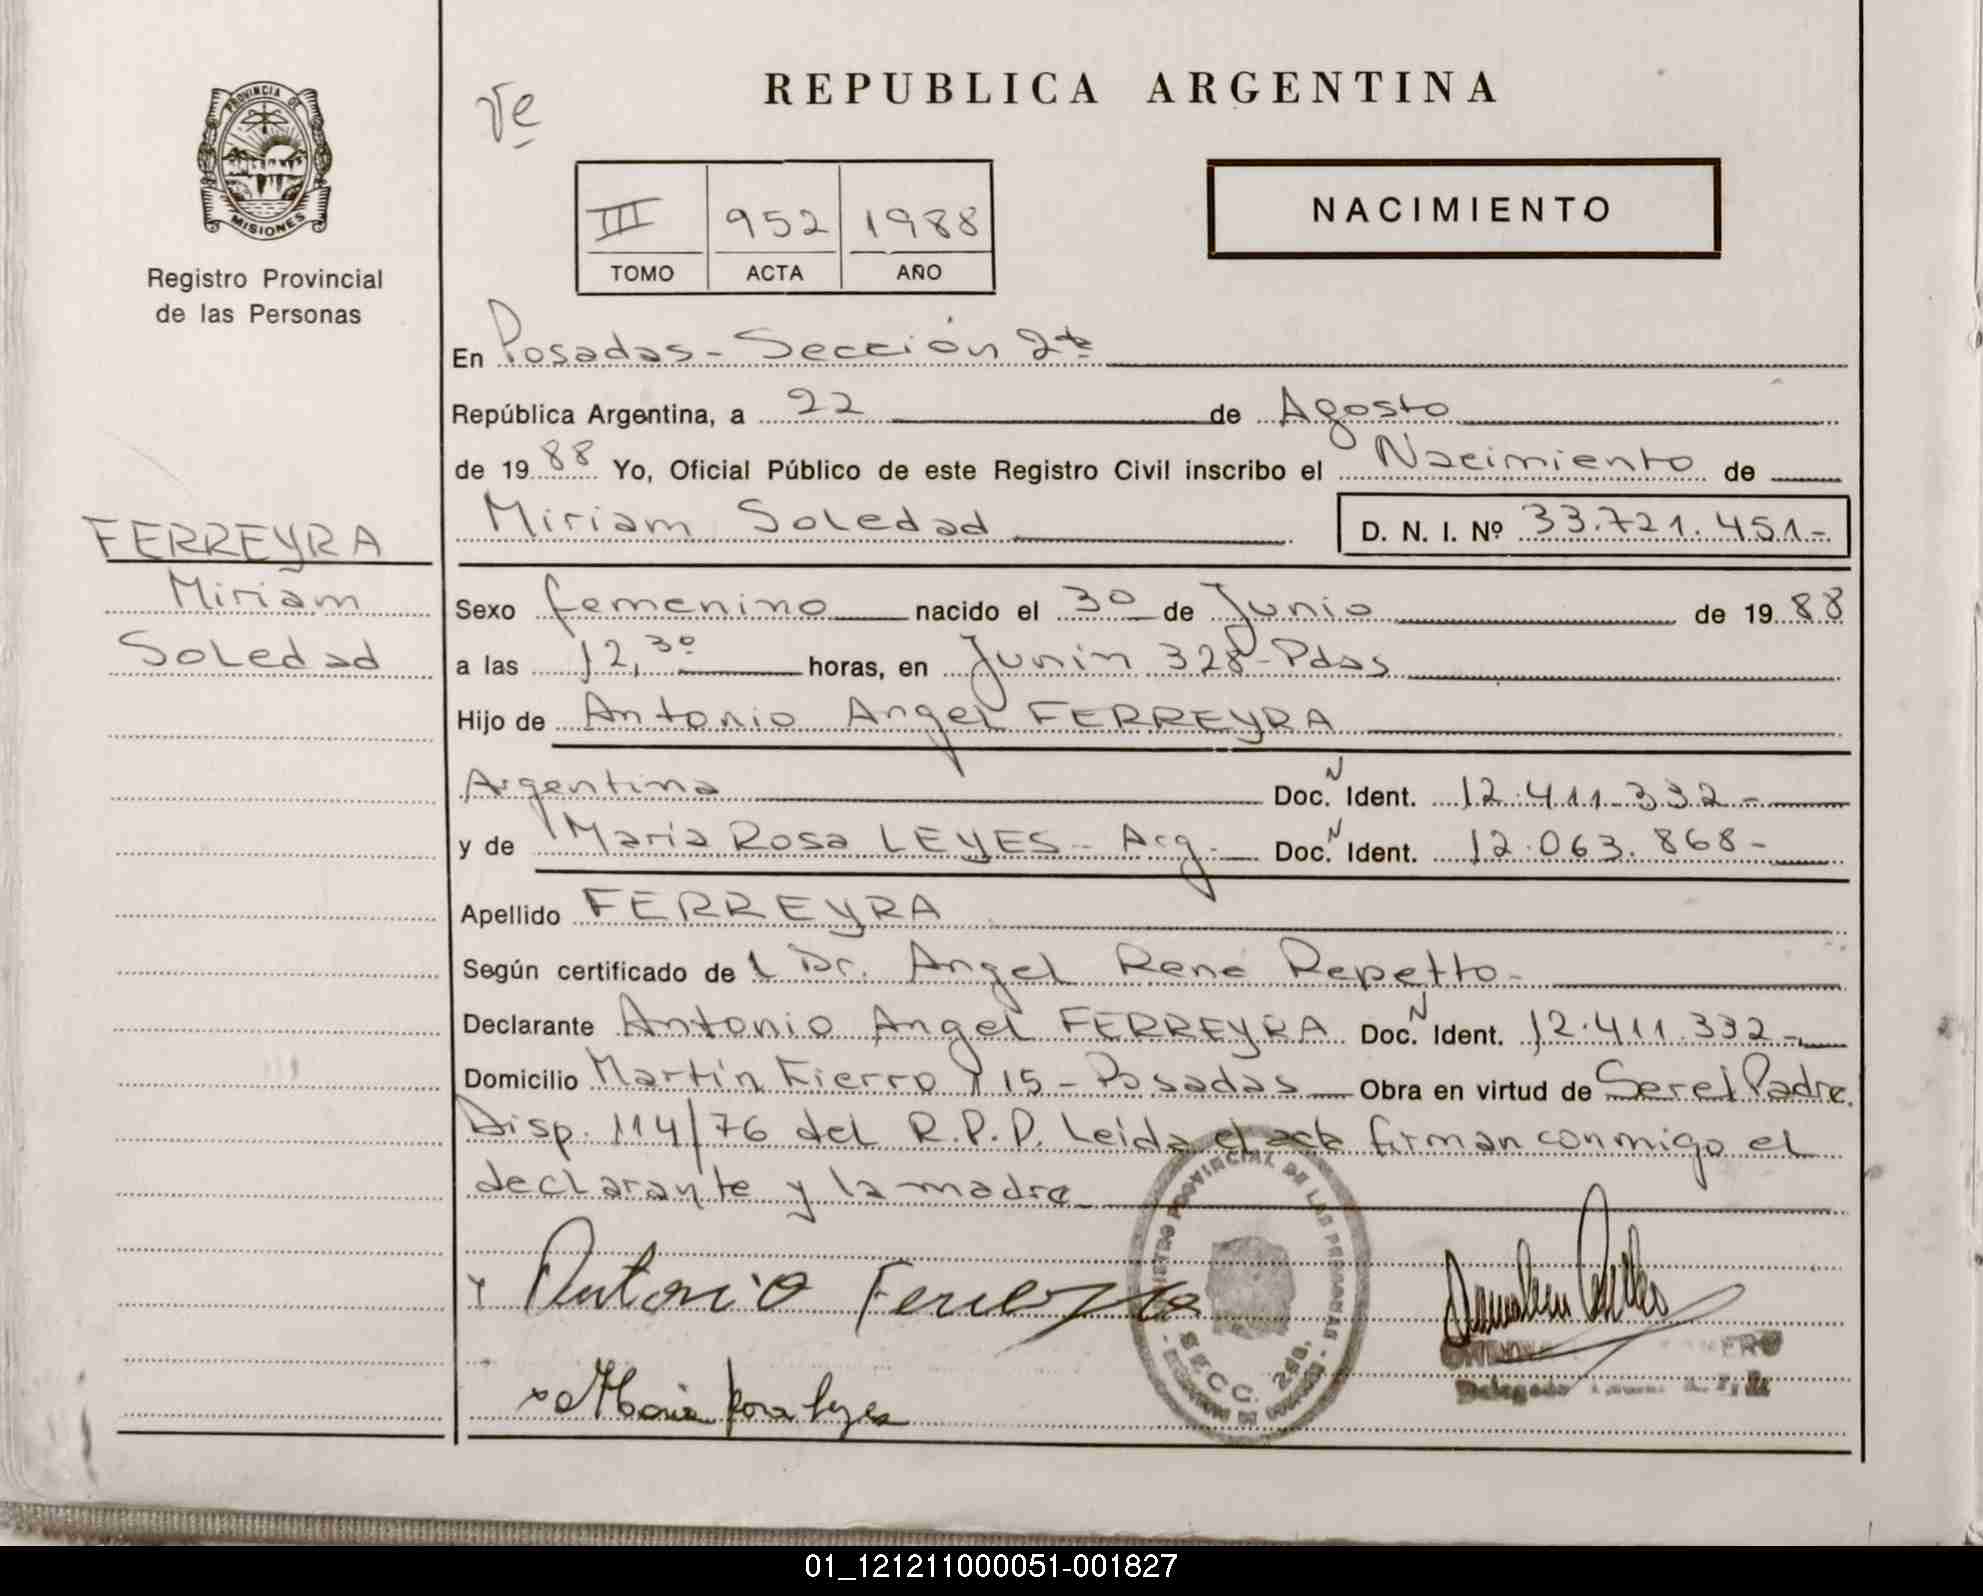 PROVINCIA DE
MISIONES
Registro Provincial
de las Personas
FERREYRA
Miriam
Soledad
Ve
REPUBLICA ARGENTINA
III 952 1988
TOMO ACTA AÑO
NACIMIENTO
En Posadas - Sección 2da
República Argentina, a 22 de Agosto
de 1988 Yo, Oficial Público de este Registro Civil inscribo el Nacimiento de
Miriam Soledad D. N. I. Nº 33.721.451-
Sexo femenino nacido el 30 de Junio de 1988
a las 12,30 horas, en Junín 328 - Pdas
Hijo de Antonio Angel FERREYRA
Argentina Doc. N Ident. 12.411.332-
y de María Rosa LEYES - Arg. Doc. N Ident. 12.063.868-
Apellido FERREYRA
Según certificado del Dr. Angel René Repetto-
Declarante Antonio Angel FERREYRA Doc. N Ident. 12.411.332-
Domicilio Martín Fierro 115 - Posadas Obra en virtud de Ser el Padre.
Disp. 114/76 del R.P.P. Leída el acta firman conmigo el
declarante y la madre
REGISTRO PROVINCIAL DE LAS PERSONAS
SECC. 2da.
Antonio Ferreyra
Maria Rosa Leyes
Delegado
01_121211000051-001827